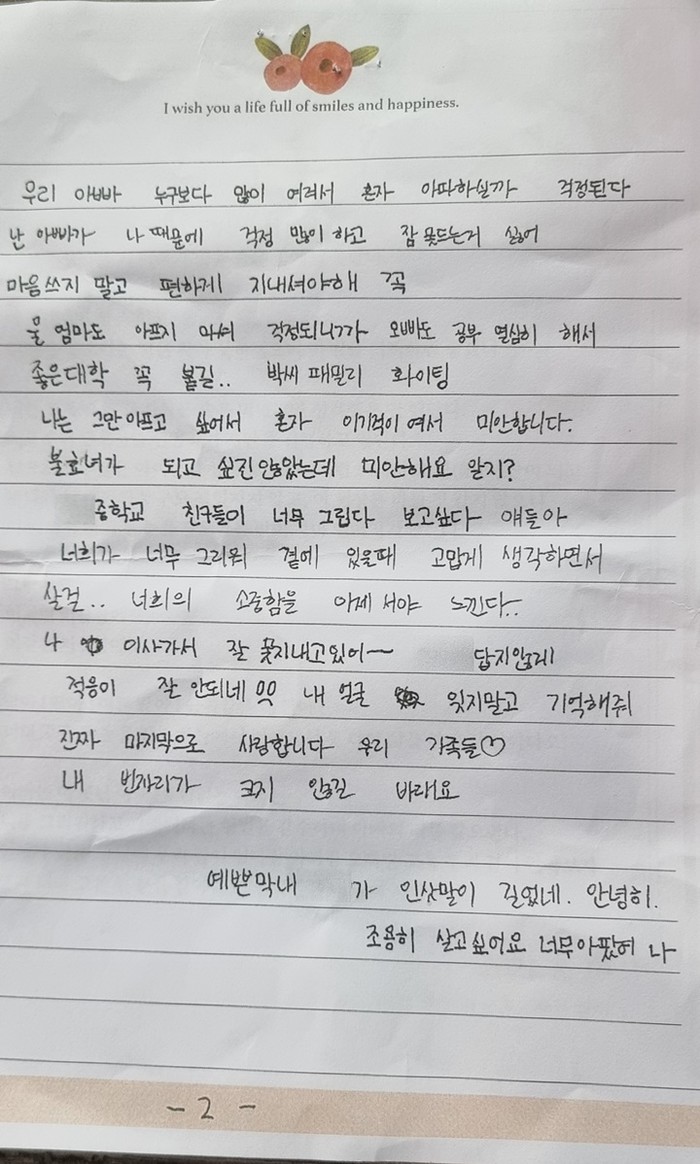 I wish you a life full of smiles and happiness.
우리 아빠 누구보다 많이 여려서 혼자 아파하실까 걱정된다
난 아빠가 나 때문에 걱정 많이 하고 잠 못드는거 싫어
마음쓰지 말고 편하게 지내셔야해 꼭
울 엄마도 아프지 마셔 걱정되니까 오빠도 공부 열심히 해서
좋은대학 꼭 붙길.. 박씨 패밀리 화이팅
나는 그만 아프고 싶어서 혼자 이기적이여서 미안합니다.
불효녀가 되고 싶진 않았는데 미안해요 알지?
중학교 친구들이 너무 그립다 보고싶다 얘들아
너희가 너무 그리워 곁에 있을때 고맙게 생각하면서
살걸.. 너희의 소중함을 이제 서야 느낀다..
나 이사가서 잘 못지내고있어~ 답지않게
적응이 잘 안되네 ㅇㅇ 내 얼굴 잊지말고 기억해줘
진짜 마지막으로 사랑합니다 우리 가족들♡
내 빈자리가 크지 않길 바래요
예쁜막내 가 인삿말이 길었네. 안녕히.
조용히 살고싶어요 너무아팠어 나
- 2 -